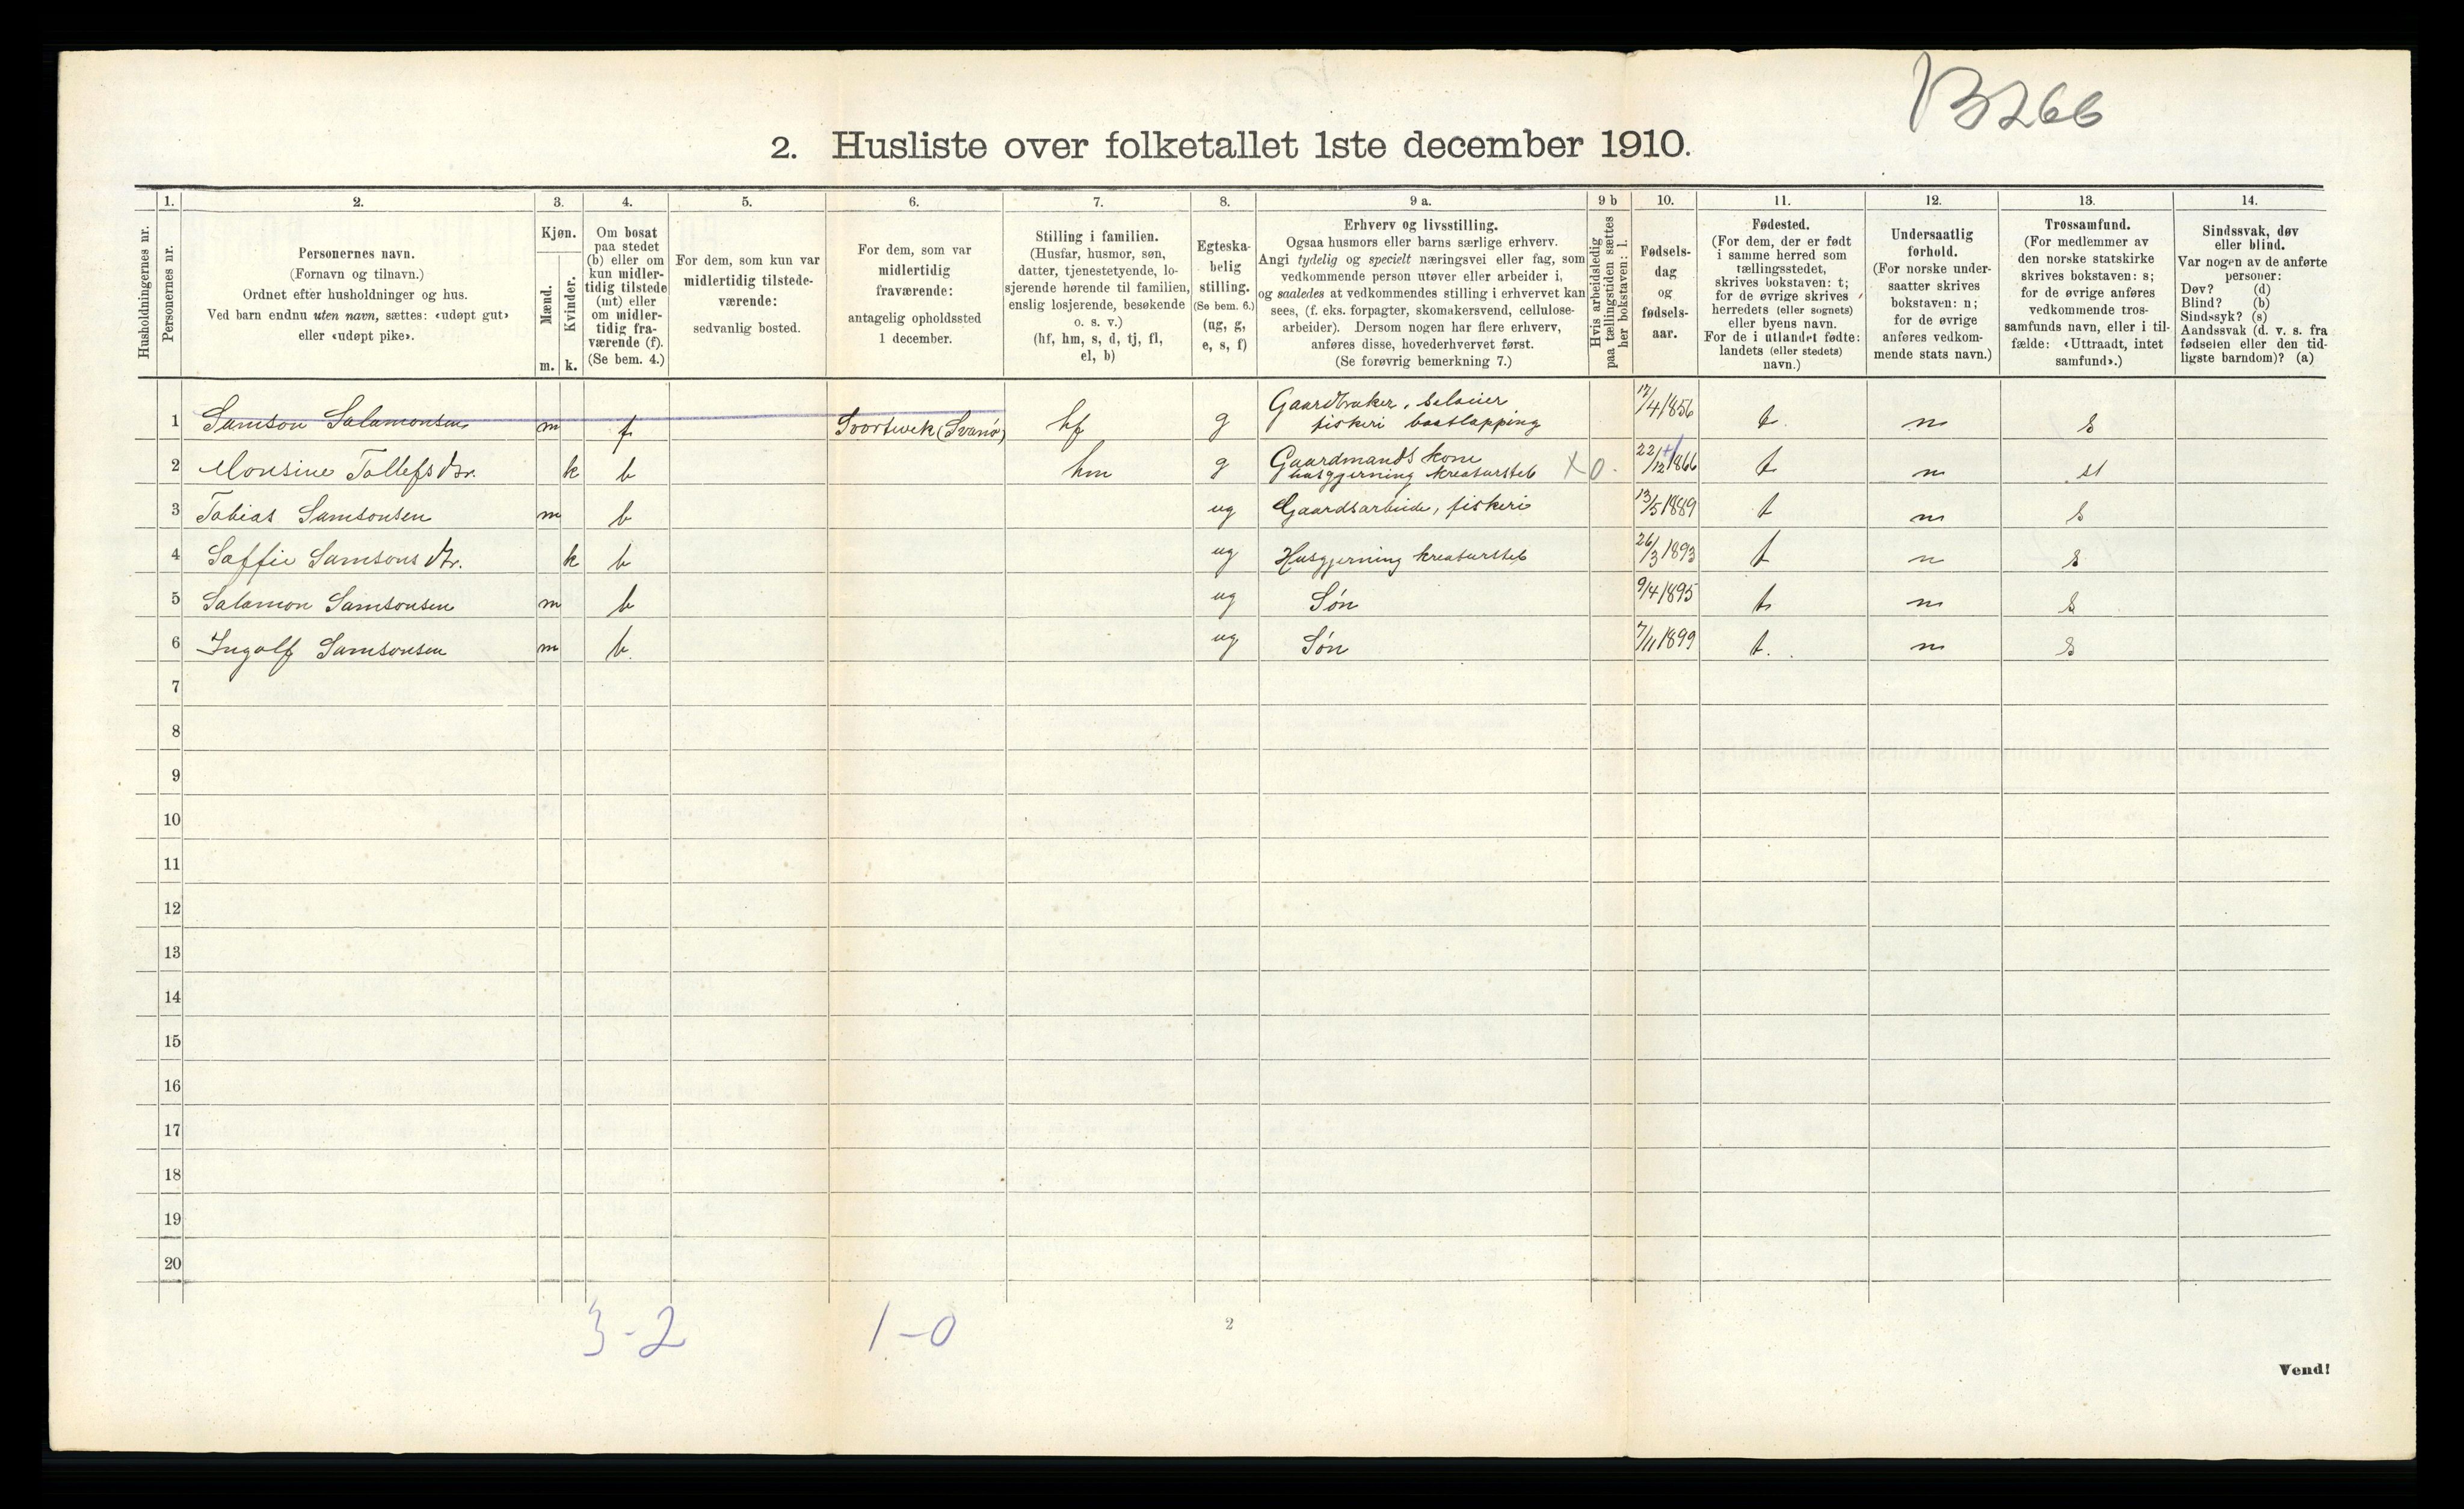 B 266
2. Husliste over folketallet 1ste december 1910.
Husholdningernes nr.
1.
Personernes nr.
2.
Personernes navn.
(Fornavn og tilnavn.)
Ordnet efter husholdninger og hus.
Ved barn endnu uten navn, sættes: «udøpt gut»
eller «udøpt pike».
3.
Kjøn.
Mænd.
Kvinder.
m. k.
4.
Om bosat
paa stedet
(b) eller om
kun midler-
tidig tilstede
(mt) eller
om midler-
tidig fra-
værende (f).
(Se bem. 4.)
5.
For dem, som kun var
midlertidig tilstede-
værende:
sedvanlig bosted.
6.
For dem, som var
midlertidig
fraværende:
antagelig opholdssted
1 december.
7.
Stilling i familien.
(Husfar, husmor, søn,
datter, tjenestetyende, lo-
sjerende hørende til familien,
enslig losjerende, besøkende
o. s. v.)
(hf, hm, s, d, tj, fl,
el, b)
8.
Egteska-
belig
stilling.
(Se bem. 6.)
(ug, g,
e, s, f)
9 a.
Erhverv og livsstilling.
Ogsaa husmors eller barns særlige erhverv.
Angi tydelig og specielt næringsvei eller fag, som
vedkommende person utøver eller arbeider i,
og saaledes at vedkommendes stilling i erhvervet kan
sees, (f. eks. forpagter, skomakersvend, cellulose-
arbeider). Dersom nogen har flere erhverv,
anføres disse, hovederhvervet først.
(Se forøvrig bemerkning 7.)
9 b
Hvis arbeidsledig
paa tællingstiden sættes
her bokstaven: l.
10.
Fødsels-
dag
og
fødsels-
aar.
11.
Fødested.
(For dem, der er født
i samme herred som
tællingsstedet,
skrives bokstaven: t;
for de øvrige skrives
herredets (eller sognets)
eller byens navn.
For de i utlandet fødte:
landets (eller stedets)
navn.)
12.
Undersaatlig
forhold.
(For norske under-
saatter skrives
bokstaven: n;
for de øvrige
anføres vedkom-
mende stats navn.)
13.
Trossamfund.
(For medlemmer av
den norske statskirke
skrives bokstaven: s;
for de øvrige anføres
vedkommende tros-
samfunds navn, eller i til-
fælde: «Uttraadt, intet
samfund».)
14.
Sindssvak, døv
eller blind.
Var nogen av de anførte
personer:
Døv? (d)
Blind? (b)
Sindssyk? (s)
Aandssvak (d. v. s. fra
fødselen eller den tid-
ligste barndom)? (a)
1 Samson Salamonsen m f (Svanø) hf g Gaardbruker, selveier fiskeri 17/4 1856 t. n s
2 Monsine Tollefsdtr. k b hm g Gaardmands kone husgjerning kreaturstel X 0. 22/12 1866 t n
3 Tobias Samsonsen m b ug Gaardsarbeide, fiskeri 13/5 1889 t n s
4 Saffie Samsonsdtr. k b ug Husgjerning kreaturstel 26/3 1893 t n s
5 Salamon Samsonsen m b ug Søn 9/4 1895 t n s
6 Ingolf Samsonsen m b. ug Søn 7/11 1899 t. n s
7
8
9
10
11
12
13
14
15
16
17
18
19
20
3-2 1-0
2
Vend!